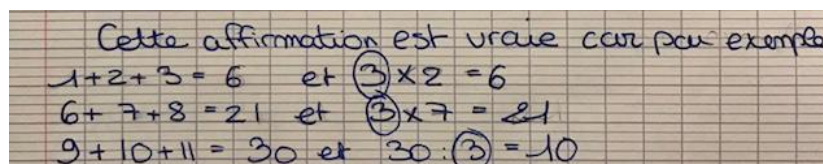 Cette affirmation est vraie car par exemple
1+2+3 = 6 et 3 × 2 = 6
6+ 7+8 = 21 et 3 × 7 = 21
9 + 10 + 11 = 30 et 30 : 3 = 10